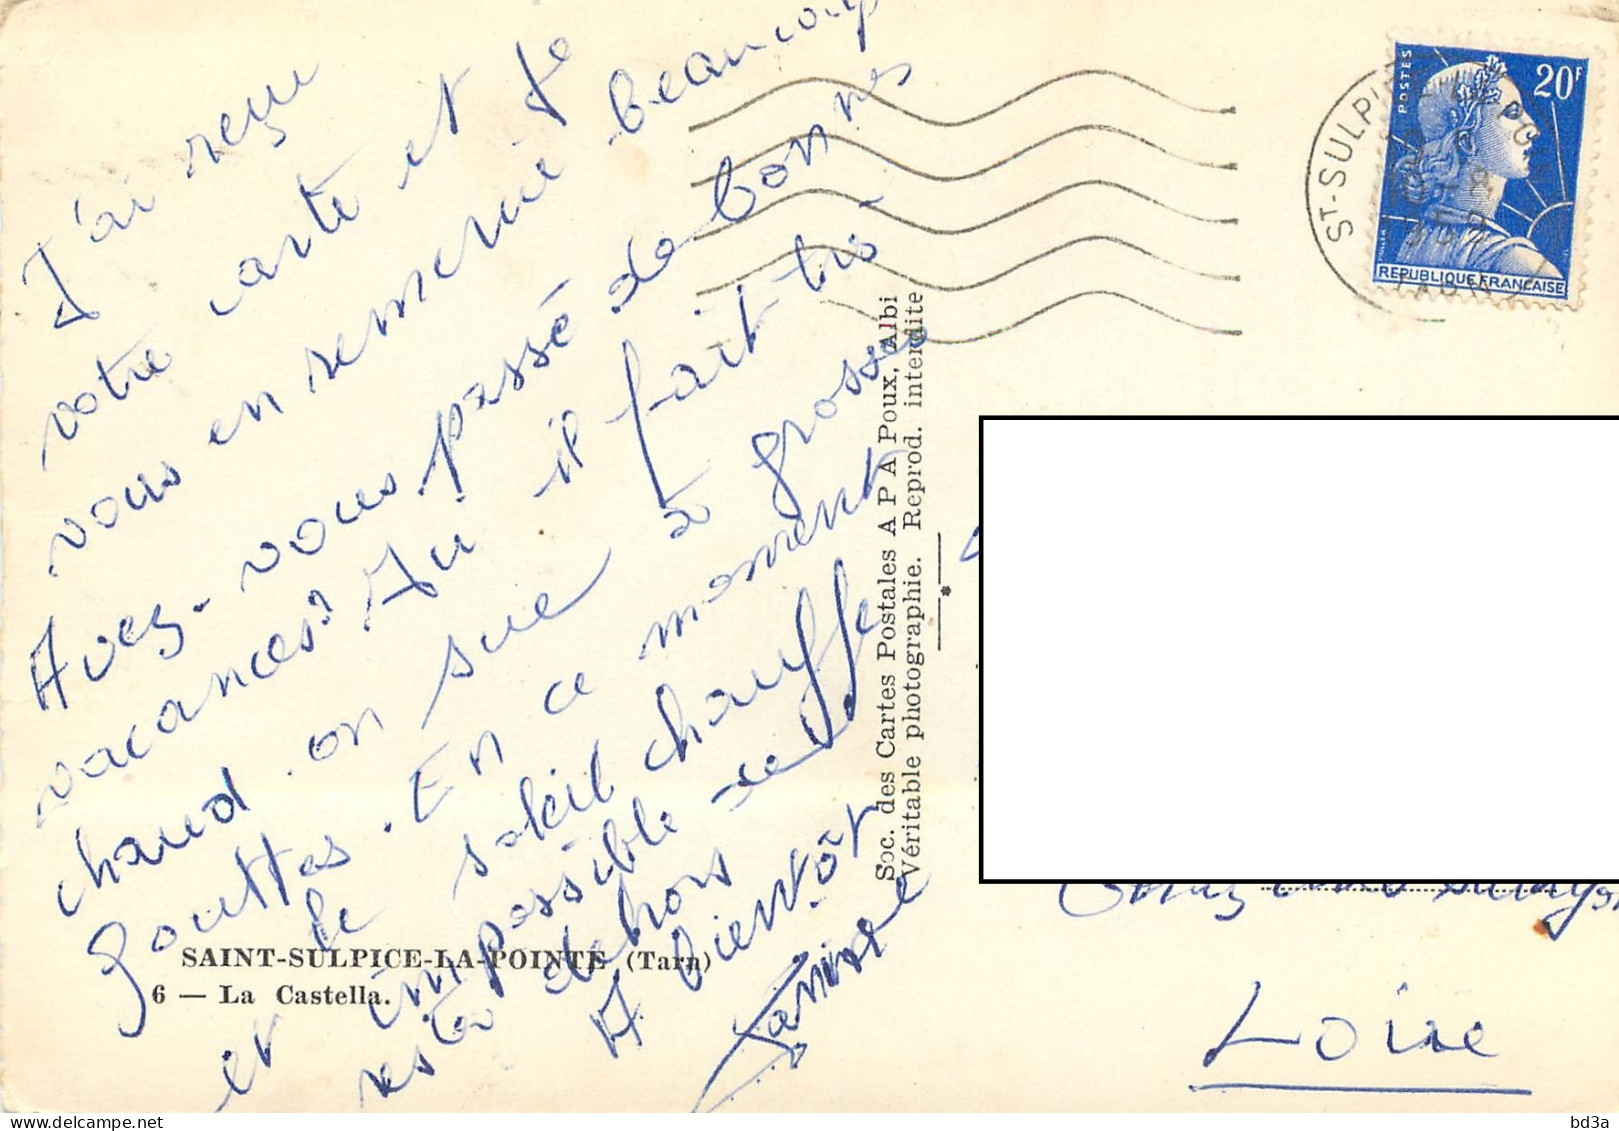 J'ai reçu
votre carte et je
vous en remercie beaucoup
Avez-vous passé de bonnes
vacances? Au il fait trè
chaud on sue à grosses
gouttes. En ce moment
le soleil chauffe
et impossible de
resté dehors
A bientôt
Janine
SAINT-SULPICE-LA-POINTE (Tarn)
6 — La Castella.
Soc. des Cartes Postales A P A Poux, Albi
Véritable photographie. Reprod. interdite
ST-SULPI
TARN
POSTES
20F
REPUBLIQUE FRANCAISE
Loire
bd3a